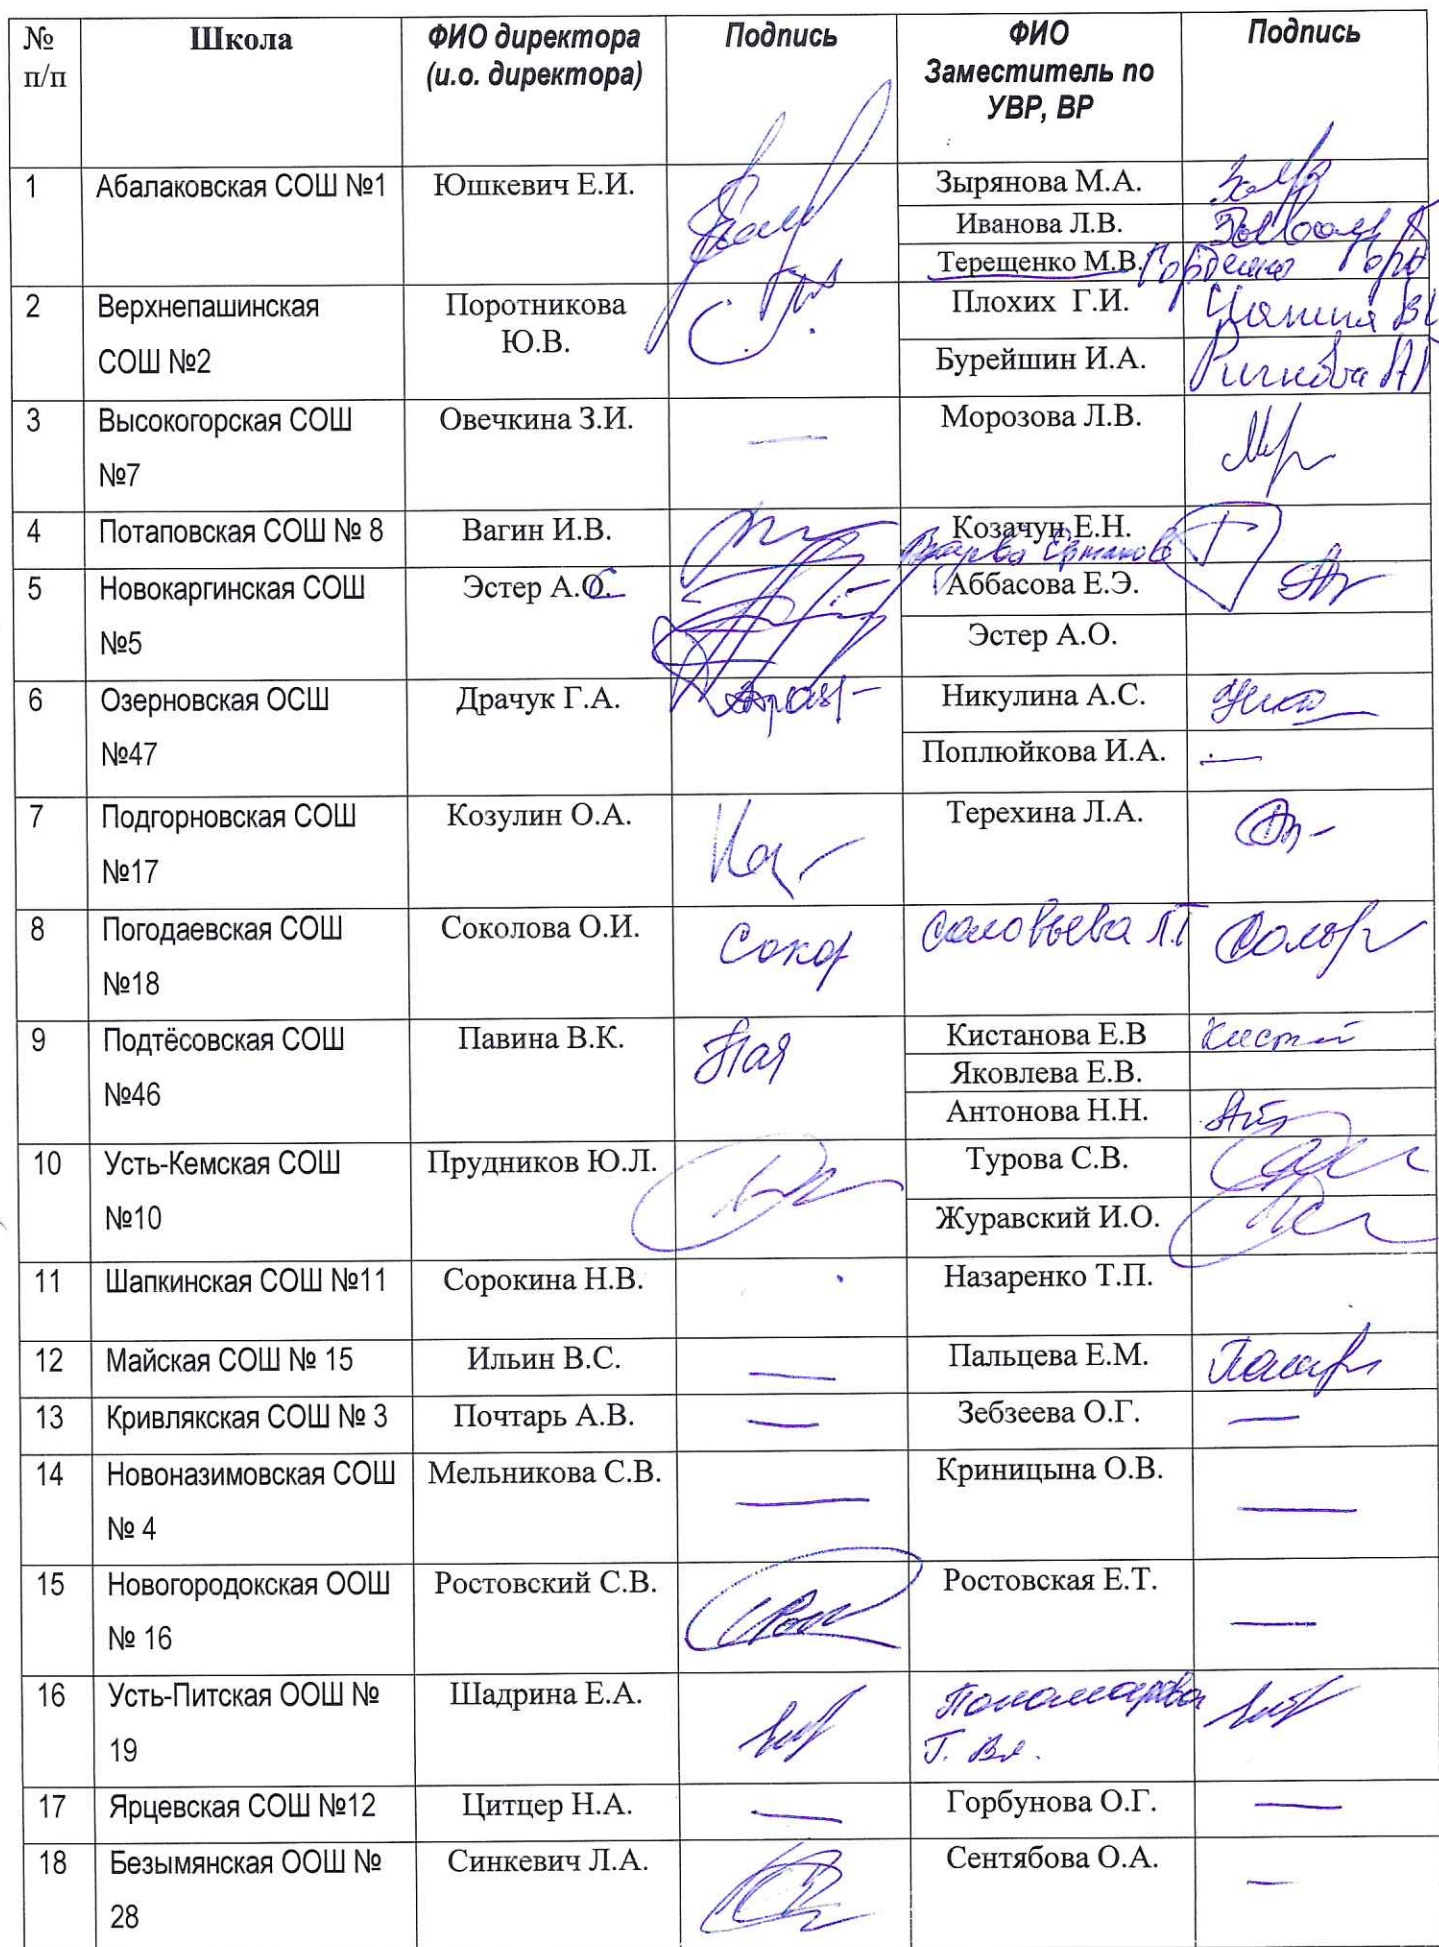 № п/п Школа ФИО директора (и.о. директора) Подпись ФИО Заместитель по УВР, ВР Подпись
1 Абалаковская СОШ №1 Юшкевич Е.И. Зырянова М.А.
Иванова Л.В.
Терещенко М.В. Гордеенко
2 Верхнепашинская СОШ №2 Поротникова Ю.В. Плохих Г.И.
Бурейшин И.А.
3 Высокогорская СОШ №7 Овечкина З.И. — Морозова Л.В.
4 Потаповская СОШ № 8 Вагин И.В. Козачун Е.Н.
5 Новокаргинская СОШ №5 Эстер А.О. Аббасова Е.Э.
Эстер А.О.
6 Озерновская ОСШ №47 Драчук Г.А. Никулина А.С.
Поплюйкова И.А. —
7 Подгорновская СОШ №17 Козулин О.А. Терехина Л.А.
8 Погодаевская СОШ №18 Соколова О.И. Соловьева Л.Г.
9 Подтёсовская СОШ №46 Павина В.К. Кистанова Е.В
Яковлева Е.В.
Антонова Н.Н.
10 Усть-Кемская СОШ №10 Прудников Ю.Л. Турова С.В.
Журавский И.О.
11 Шапкинская СОШ №11 Сорокина Н.В. Назаренко Т.П.
12 Майская СОШ № 15 Ильин В.С. — Пальцева Е.М.
13 Кривлякская СОШ № 3 Почтарь А.В. — Зебзеева О.Г. —
14 Новоназимовская СОШ № 4 Мельникова С.В. — Криницына О.В. —
15 Новогородокская ООШ № 16 Ростовский С.В. Ростовская Е.Т. —
16 Усть-Питская ООШ № 19 Шадрина Е.А. Пономарева Г. Вл.
17 Ярцевская СОШ №12 Цитцер Н.А. — Горбунова О.Г. —
18 Безымянская ООШ № 28 Синкевич Л.А. Сентябова О.А. —